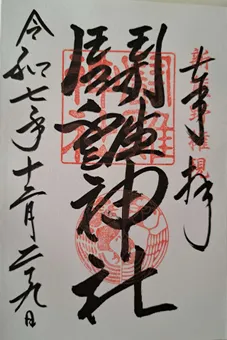 奉拝
鬪雞神社
令和七年十二月二十九日